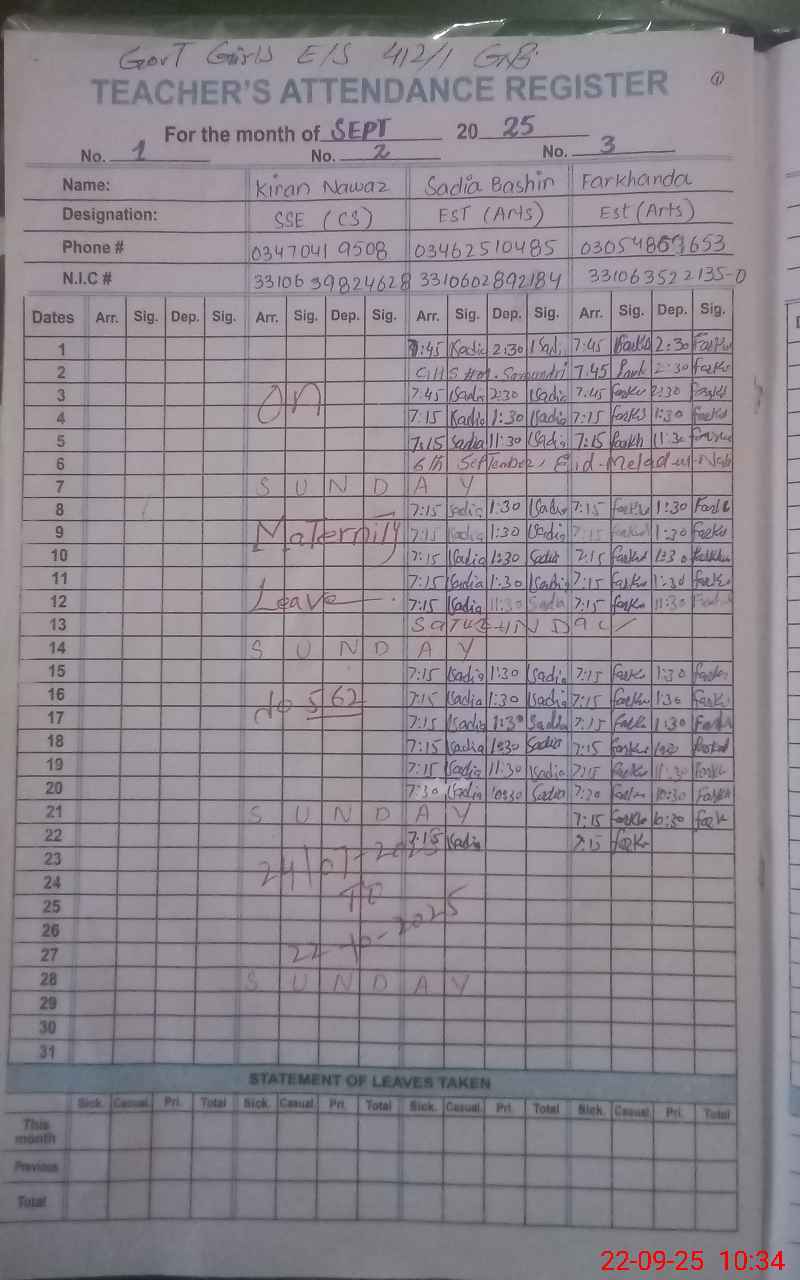 Govt Girls E/S 412/1 GB.
①
TEACHER'S ATTENDANCE REGISTER
For the month of SEPT 20 25
No. 1 No. 2 No. 3
Name: Kiran Nawaz Sadia Bashir Farkhanda
Designation: SSE (CS) EST (Arts) Est (Arts)
Phone # 0347041 9508 03462510485
N.I.C # 33106 39824628 3310602892184 331063522135-0
Dates Arr. Sig. Dep. Sig. Arr. Sig. Dep. Sig. Arr. Sig. Dep. Sig. Arr. Sig. Dep. Sig.
1 7:45 Sadia 2:30 Sadi 7:45 Farkh 2:30 Farkh
2 7:45 2:30 Farkh
3 On 7:45 Sadia 2:30 Sadia 7:45 Farkh 2:30 Farkh
4 7:15 Sadia 1:30 Sadia 7:15 Farkh 1:30 Farkh
5 7:15 Sadia 11:30 Sadia 7:15 Farkh 11:30
6 6th September, Eid-Melad-un-Nabi
7 S U N D A Y
8 7:15 Sadia 1:30 Sadia 7:15 Farkh 1:30 Farkh
9 Maternity 7:15 Sadia 1:30 Sadia 7:15 Farkh 1:30 Farkh
10 7:15 Sadia 1:30 Sadia 7:15 Farkh 1:30 Farkh
11 7:15 Sadia 1:30 Sadia 7:15 Farkh 1:30 Farkh
12 Leave 7:15 Sadia 11:30 Sadia 7:15 Farkh 11:30
13
14 S U N D A Y
15 7:15 Sadia 1:30 Sadia 7:15 Farkh 1:30 Farkh
16 No 562 7:15 Sadia 1:30 Sadia 7:15 Farkh 1:30 Farkh
17 7:15 Sadia 1:30 Sadia 7:15 Farkh 1:30 Farkh
18 7:15 Sadia 1:30 Sadia 7:15 Farkh
19 7:15 Sadia 11:30 Sadia 7:15 Farkh 11:30 Farkh
20 7:30 Sadia 10:30 Sadia 10:30 Farkh
21 S U N D A Y 7:15 Farkh 10:30 Farkh
22 7:15 Sadia 7:15 Farkh
23 24/07-2025
24 To
25
26 22-10-2025
27
28 S U N D A Y
29
30
31
STATEMENT OF LEAVES TAKEN
Sick. Casual. Pri. Total Sick. Casual. Pri. Total Sick. Casual. Pri. Total Sick. Casual. Pri. Total
This month
Previous
Total
22-09-25 10:34